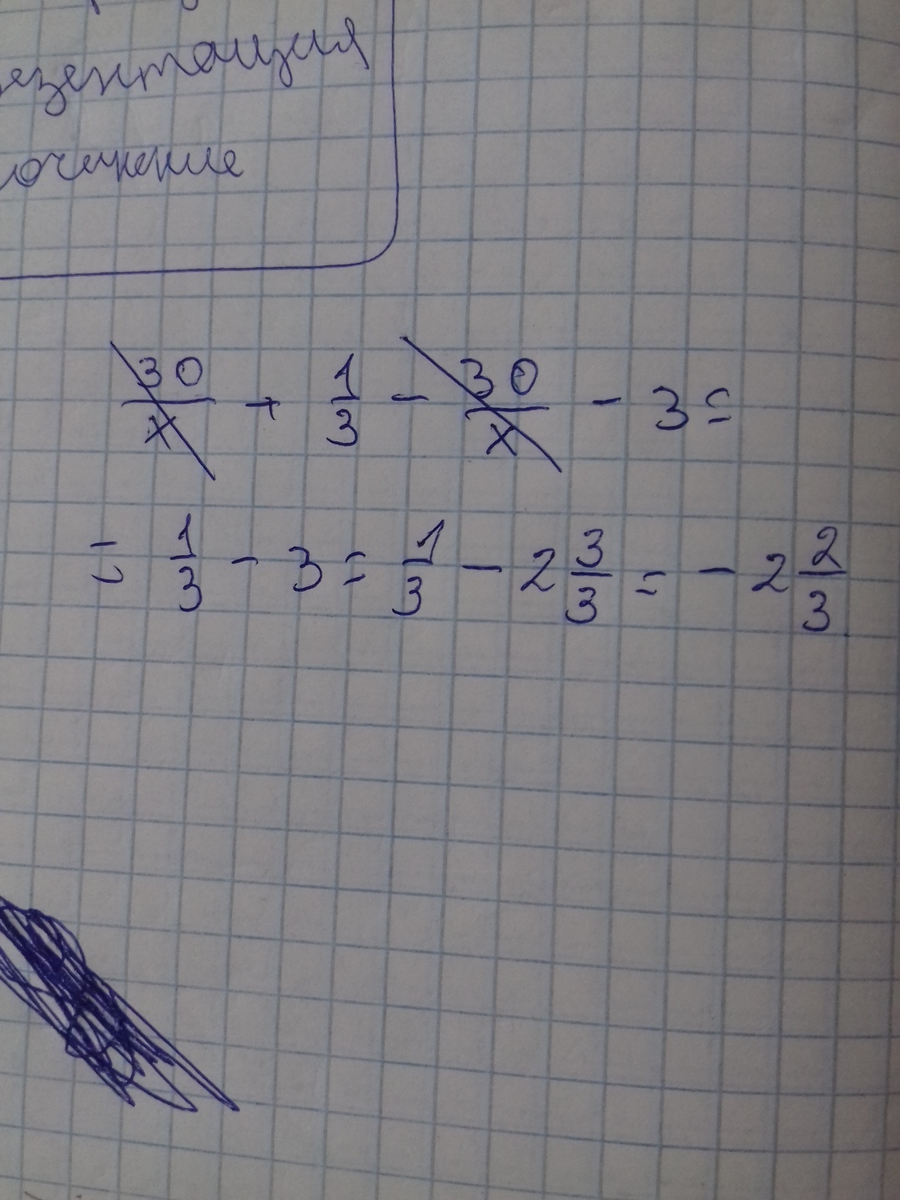 езентация
очинение
30/x + 1/3 - 30/x - 3 =
= 1/3 - 3 = 1/3 - 2 3/3 = - 2 2/3